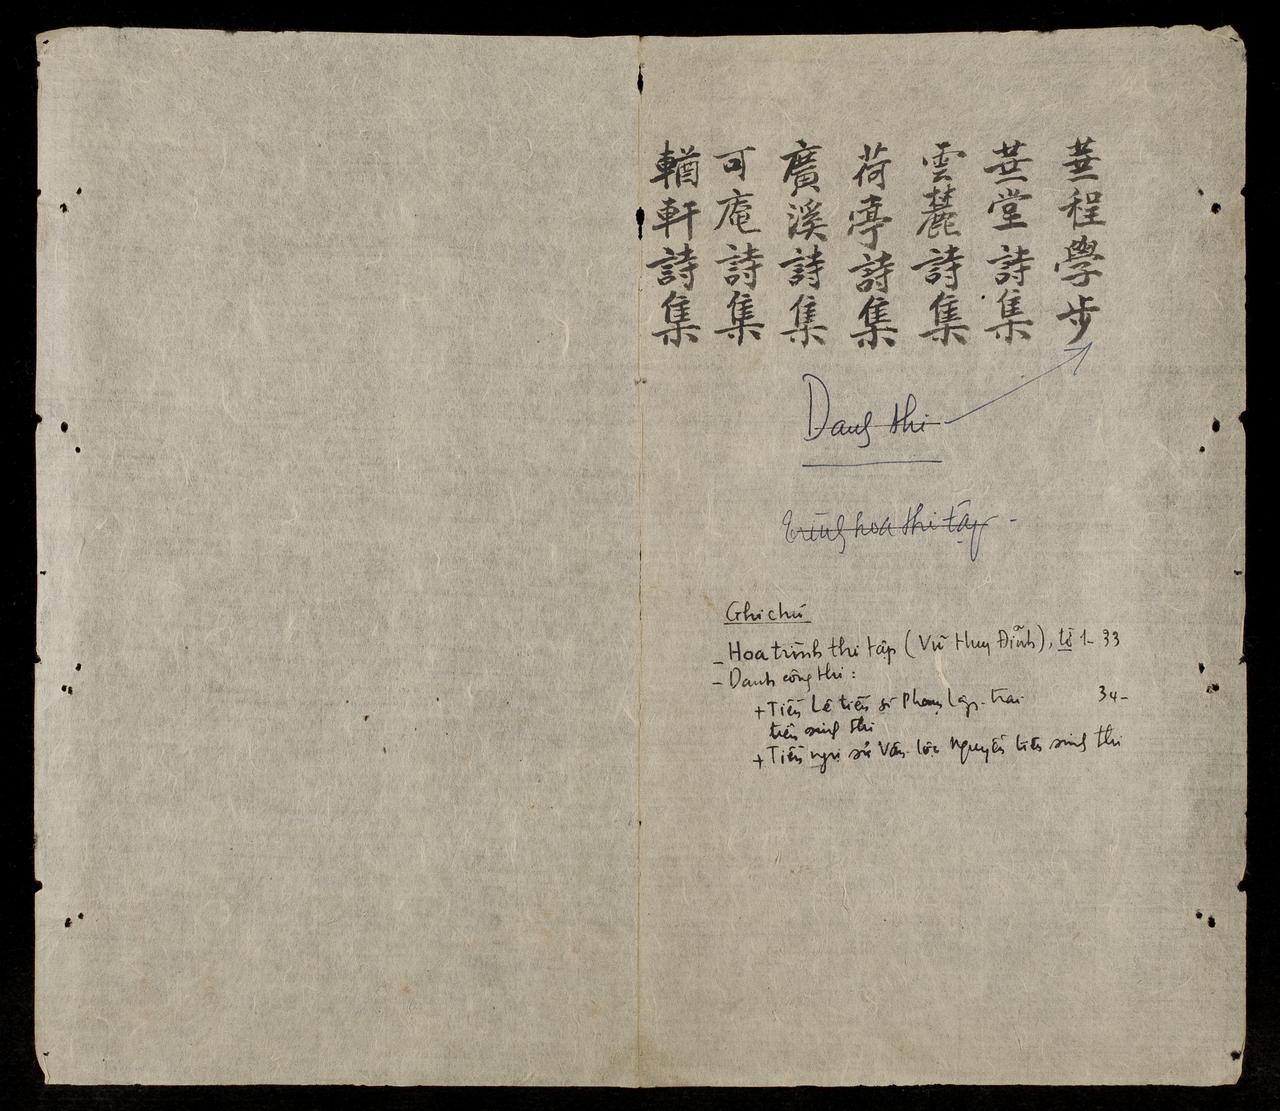 華程學步
華堂詩集
雲麓詩集
荷亭詩集
廣溪詩集
可庵詩集
輶軒詩集
Danh thi
Trình hoa thi tập -
Ghi chú
- Hoa trình thi tập (Vũ Huy Đĩnh), tờ 1-33
- Danh công thi:
+ Tiền Lê tiến sĩ Phạm Lập-trai 34-
tiên sinh thi
+ Tiền ngự sử Vân-lộc Nguyễn tiên sinh thi